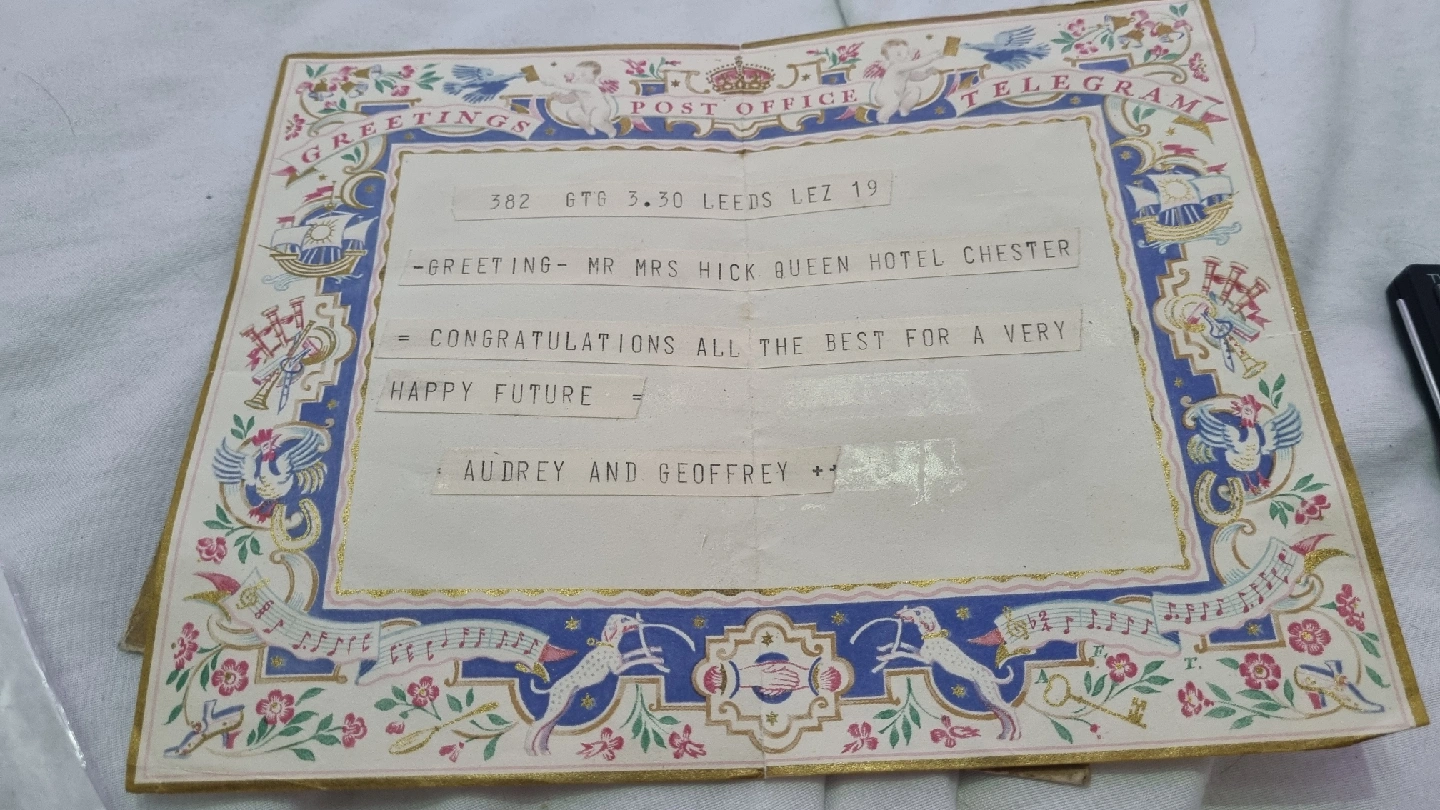 GREETINGS POST OFFICE TELEGRAM
382 GTG 3.30 LEEDS LEZ 19
-GREETING- MR MRS HICK QUEEN HOTEL CHESTER
= CONGRATULATIONS ALL THE BEST FOR A VERY
HAPPY FUTURE =
AUDREY AND GEOFFREY ++
A F. T.